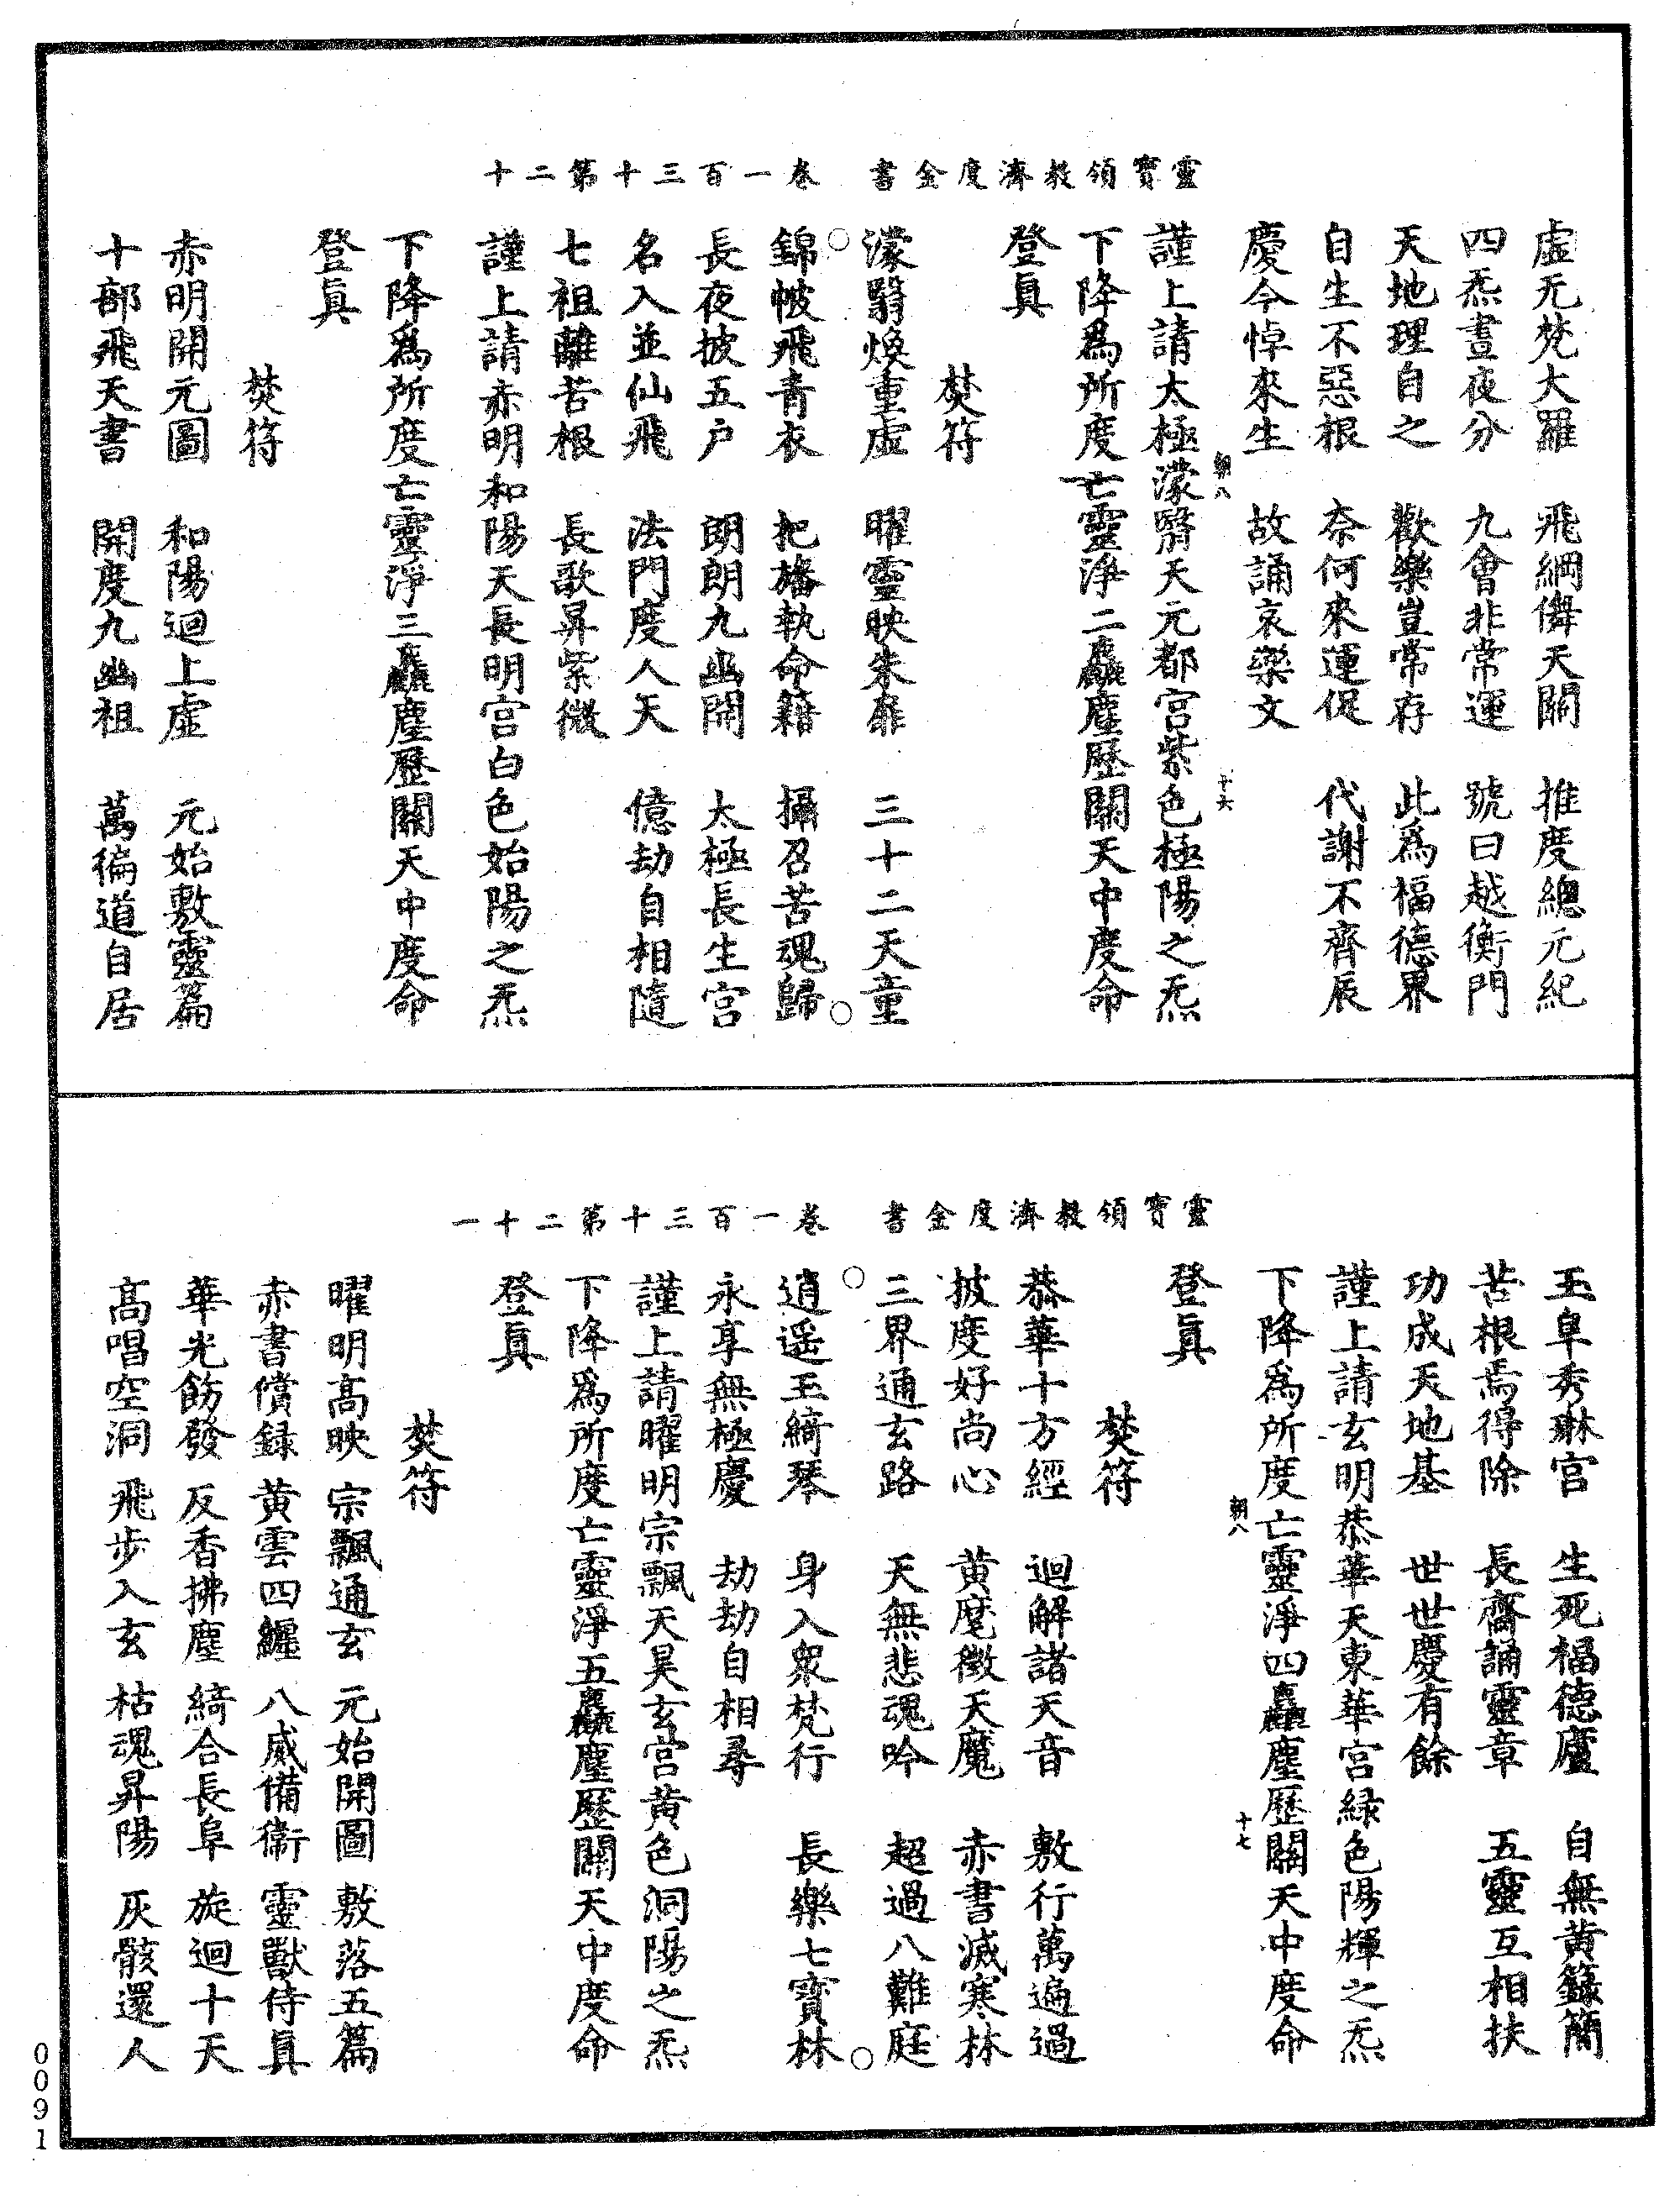 靈寶領教濟度金書　卷一百三十第二十
虛无梵大羅　飛綱儛天關　推度總元紀
四炁晝夜分　九會非常運　號曰越衡門
天地理自之　歡樂豈常存　此爲福德界
自生不惡根　奈何來運促　代謝不齊辰
慶今悼來生　故誦哀樂文
朝八　十六
謹上請太極濛翳天元都宮紫色極陽之炁
下降爲所度亡靈淨二麤塵歷關天中度命
登眞
焚符
濛翳煥重虛　曜靈映朱扉　三十二天童
錦帔飛青衣　把旛執命籍　攝召苦魂歸
長夜披五戶　朗朗九幽開　太極長生宮
名入並仙飛　法門度人天　億劫自相隨
七祖離苦根　長歌昇紫微
謹上請赤明和陽天長明宮白色始陽之炁
下降爲所度亡靈淨三麤塵歷關天中度命
登眞
焚符
赤明開元圖　和陽迴上虛　元始敷靈篇
十部飛天書　開度九幽祖　萬徧道自居
靈寶領教濟度金書　卷一百三十第二十一
玉阜秀琳宮　生死福德廬　自無黃籙簡
苦根焉得除　長齋誦靈章　五靈互相扶
功成天地基　世世慶有餘
謹上請玄明恭華天東華宮綠色陽輝之炁
下降爲所度亡靈淨四麤塵歷關天中度命
朝八　十七
登眞
焚符
恭華十方經　迴解諸天音　敷行萬遍過
披度好尚心　黃麾徵天魔　赤書滅寒林
三界通玄路　天無悲魂吟　超過八難庭
逍遥玉綺琴　身入眾梵行　長樂七寶林
永享無極慶　劫劫自相尋
謹上請曜明宗飄天昊玄宮黃色洞陽之炁
下降爲所度亡靈淨五麤塵歷關天中度命
登眞
焚符
曜明高映　宗飄通玄　元始開圖　敷落五篇
赤書儐錄　黃雲四纏　八威備衞　靈獸侍眞
華光飭發　反香拂塵　綺合長阜　旋迴十天
高唱空洞　飛步入玄　枯魂昇陽　灰骸還人
0091